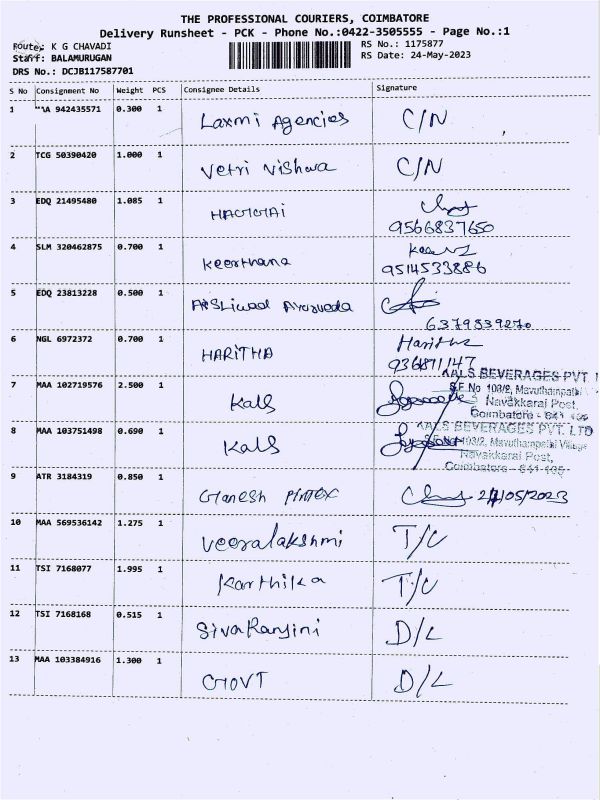 THE PROFESSIONAL COURIERS, COIMBATORE
Delivery Runsheet - PCK - Phone No.:0422-3505555 - Page No.:1
Route: K G CHAVADI
RS No.: 1175877
Staff: BALAMURUGAN
RS Date: 24-May-2023
DRS No.: DCJB117587701
S No Consignment No Weight PCS Consignee Details Signature
1 942435571 0.300 1 Laxmi Agencies C/N
2 TCG 50390420 1.000 1 Vetri Vishwa C/N
3 EDQ 21495480 1.085 1
9566837650
4 SLM 320462875 0.700 1 Keerthana
9514533886
5 EDQ 23813228 0.500 1 Ayurveda
6379839270
6 NGL 6972372 0.700 1 HARITHA Haritha
936871147
AALS BEVERAGES PVT.
7 MAA 102719576 2.500 1 Kals S.F. No 103/2, Mavuthampathi
Navakkarai Post,
Coimbatore - 641 105
AALS BEVERAGES PVT. LTD
8 MAA 103751498 0.690 1 Kals S.F. No 103/2, Mavuthampathi Village
Navakkarai Post,
Coimbatore - 641 105
9 ATR 3184319 0.850 1 Ganesh 24/05/2023
10 MAA 569536142 1.275 1 Veeralakshmi T/C
11 TSI 7168077 1.995 1 Karthika T/C
12 TSI 7168168 0.515 1 SivaRanjini D/L
13 MAA 103384916 1.300 1 GOVT D/L